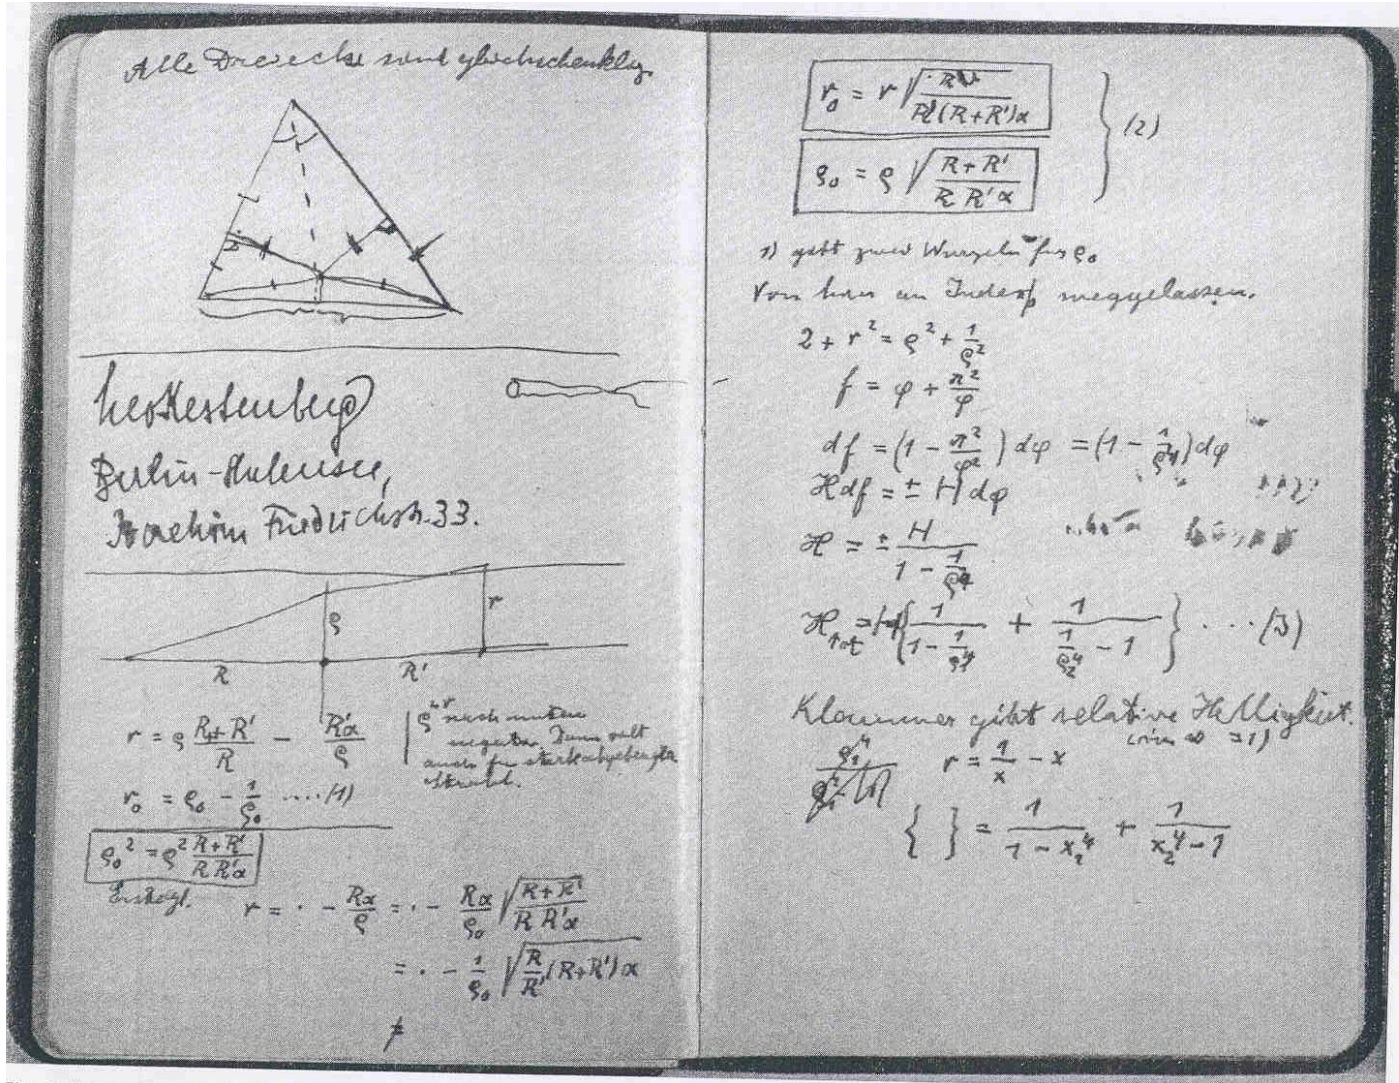 Alle Dreiecke sind gleichschenklig.
Leo Kestenberg
Berlin-Halensee,
Joachim Friedrichstr. 33.
ρ
r
R
R'
r = ρ (R+R')/R − R'α/ρ
ρ nach unten
negativ. Dann gilt
auch für stark abgebeugten
Strahl.
r₀ = ρ₀ − 1/ρ₀ ....(1)
ρ₀² = ρ² (R+R')/(R R'α)
r = · − Rα/ρ = · − Rα/ρ₀ √((R+R')/(R R'α))
= · − 1/ρ₀ √(R/R' (R+R')α)
≠
r₀ = r √(R/(R'(R+R')α))
ρ₀ = ρ √((R+R')/(R R'α))
} (2)
1) gibt zwei Wurzeln für ρ₀
Von hier an Index weggelassen.
2 + r² = ρ² + 1/ρ²
f = φ + π²/φ
df = (1 − π²/φ²) dφ = (1 − 1/ρ⁴) dφ
H df = ± H dφ
H = ± H/(1 − 1/ρ⁴)
H_tot = H {1/(1 − 1/ρ₁⁴) + 1/(1/ρ₂⁴ − 1)} .... (3)
Klammer gibt relative Helligkeit.
r = 1/x − x
{ } = 1/(1 − x₁⁴) + 1/(x₂⁴ − 1)